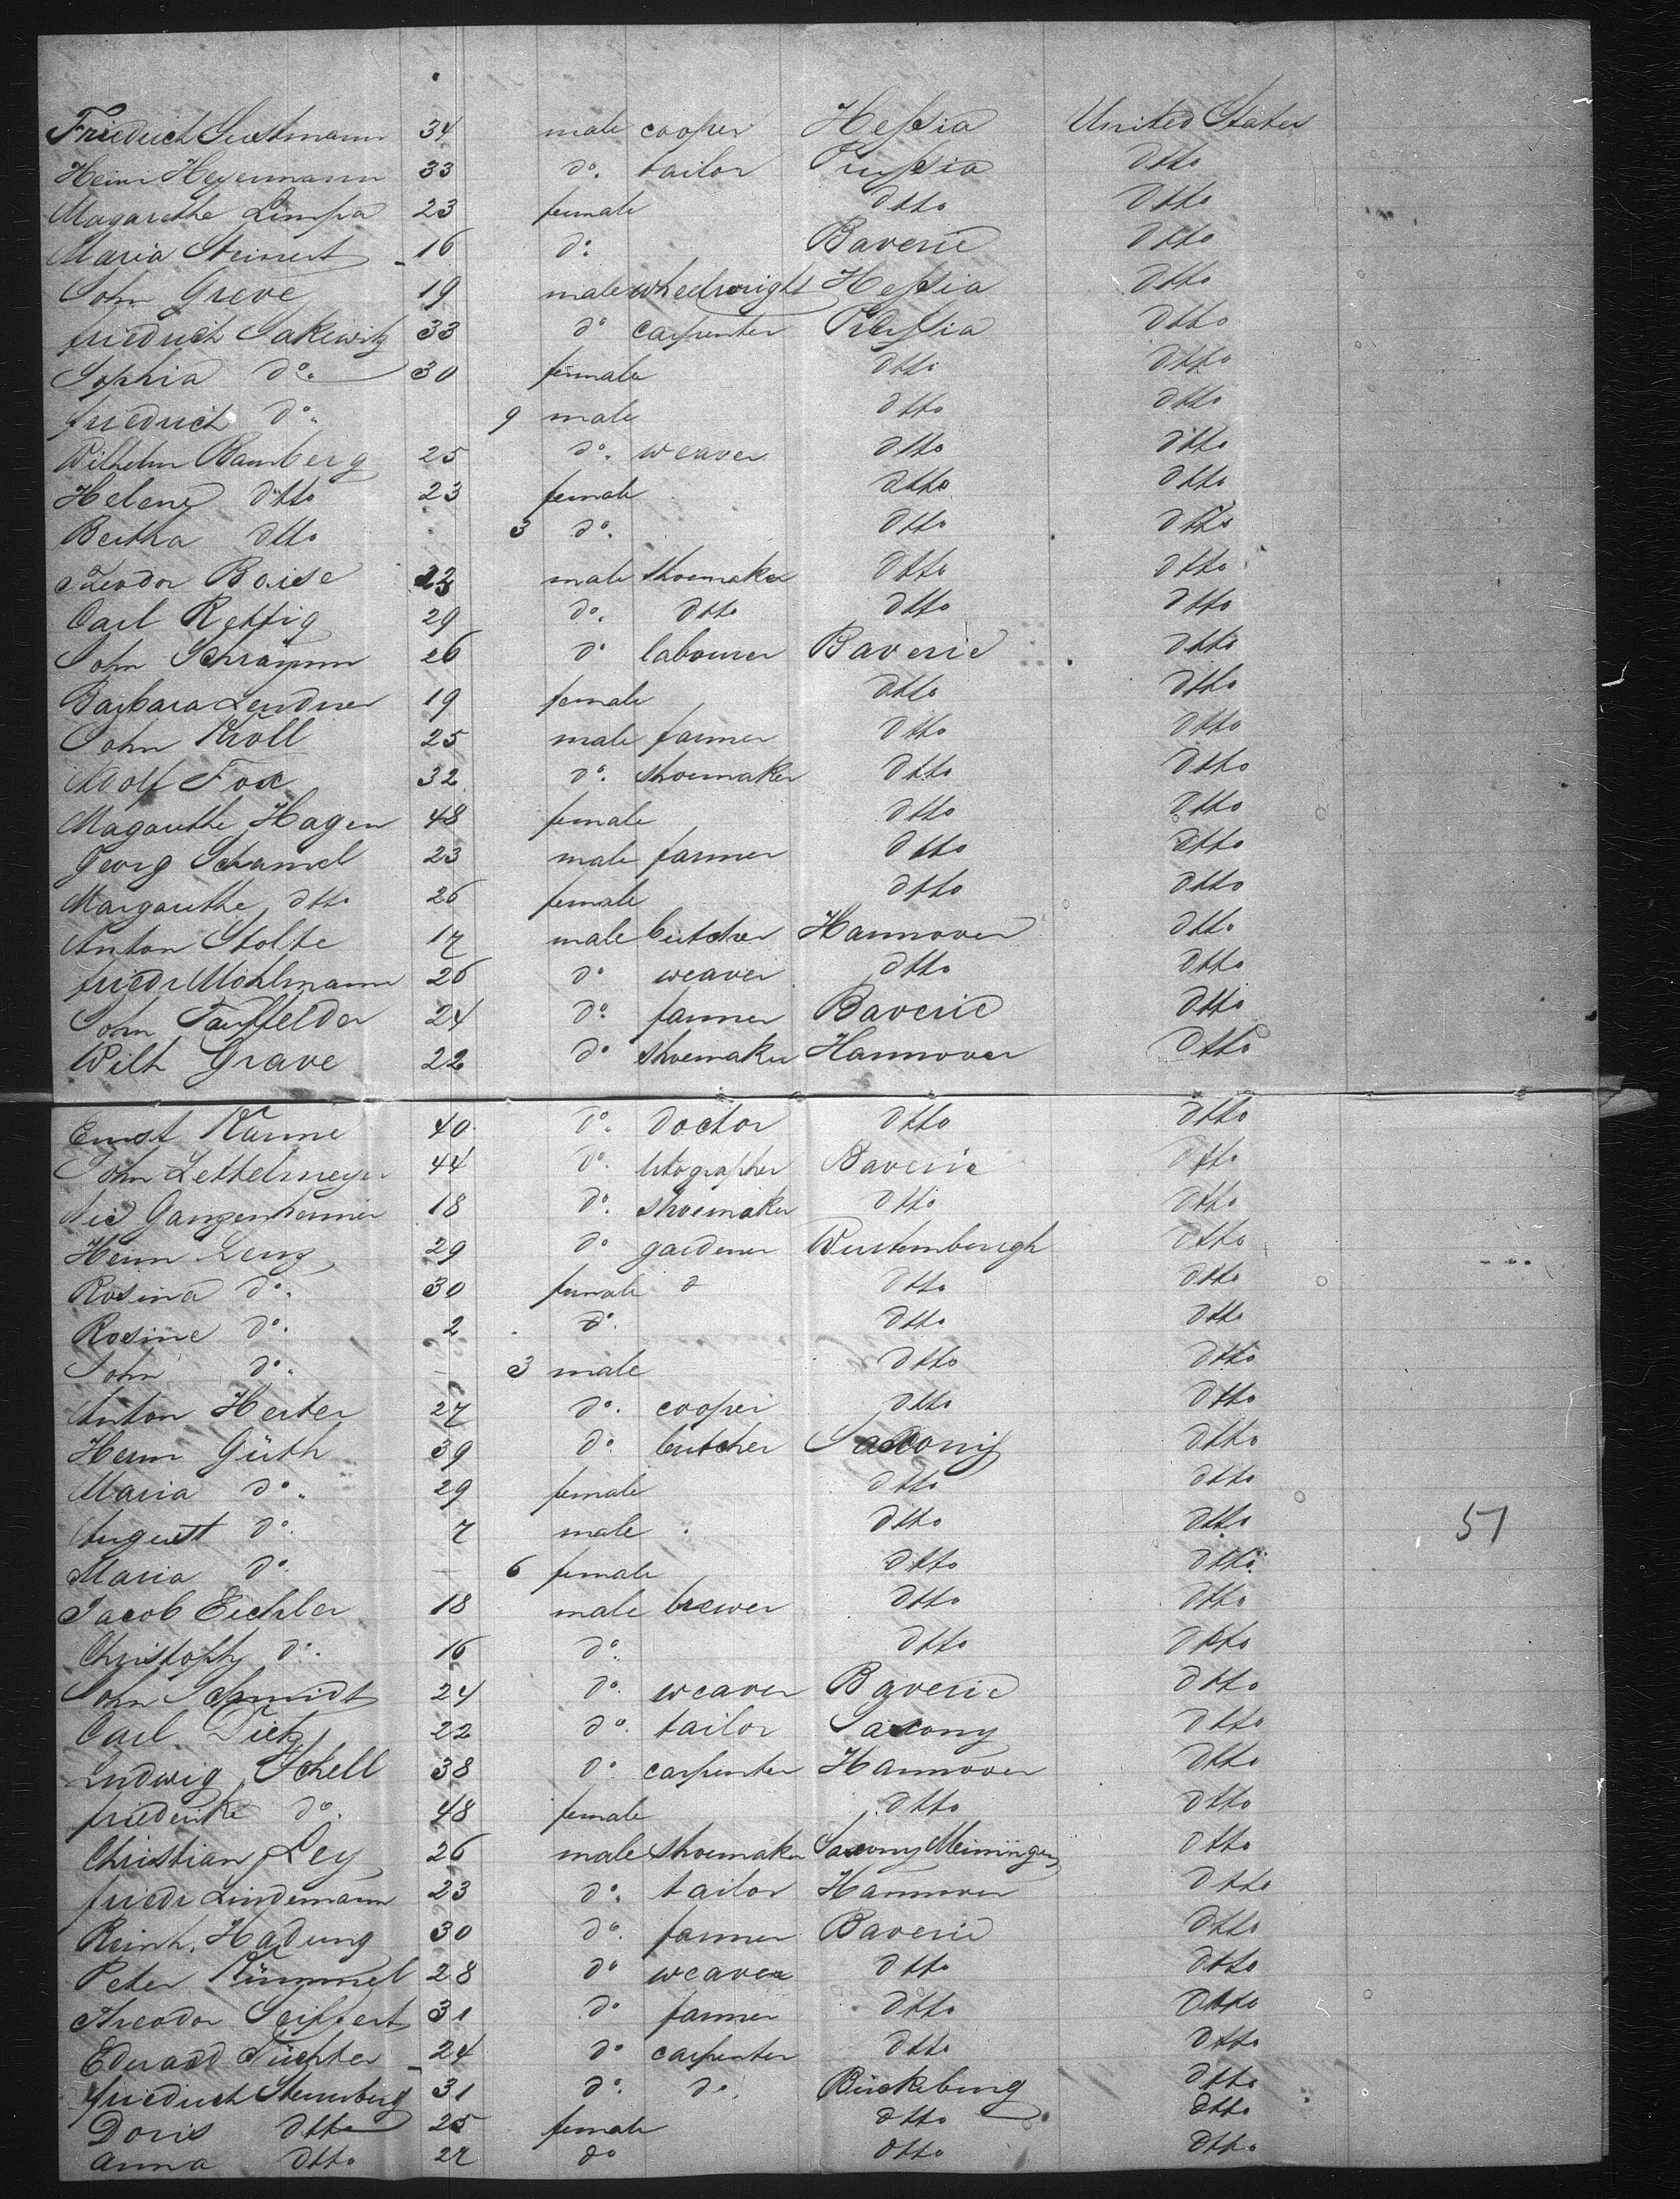 Friedrich Sustmann 34 male cooper Hessia United States
Heinr Heyermann 33 do. tailor Prussia dtto
Magarethe Limpa 23 female dtto dtto
Maria Steinert 16 do. Baverie dtto
John Greve 19 male wheelwright Hessia dtto
friedrich Sakewitz 33 do carpenter Prussia dtto
Sophia do. 30 female dtto dtto
friedrich do. 9 male dtto dtto
Wilhelm Bamberg 25 do. weaver dtto dtto
Helene dtto 23 female dtto dtto
Bertha dtto 3 do. dtto dtto
Teodor Boise 23 male shoemaker dtto dtto
Carl Rettig 29 do. dtto dtto dtto
John Schramm 26 do labourer Baverie dtto
Barbara Lendner 19 female dtto dtto
John Kroll 25 male farmer dtto dtto
Adolf Fox 32 do. shoemaker dtto dtto
Magarethe Hagen 48 female dtto dtto
Georg Schamel 23 male farmer dtto dtto
Margarethe dtto 26 female dtto dtto
Anton Stolte 17 male butcher Hannover dtto
friedr Mohlmann 26 do weaver dtto dtto
John Tauffelder 24 do. farmer Baverie dtto
Wilh Grave 22 do shoemaker Hannover dtto
Ernst Kanne 40 do. doctor dtto dtto
John Zettelmeyer 44 do. litographer Baverie dtto
Nic Gangenheimer 18 do. shoemaker dtto dtto
Herm Leng 29 do gardener Wurtembergh dtto
Rosina do. 30 female d dtto dtto
Rosine do. 2 do. dtto dtto
John do. 3 male dtto dtto
Anton Herter 27 do. cooper dtto dtto
Herm Güth 39 do. butcher Saxony dtto
Maria do. 29 female dtto dtto
August do. 7 male dtto dtto 51
Maria do. 6 female dtto dtto
Jacob Eichler 18 male brewer dtto dtto
Christoph do. 16 do. dtto dtto
John Schmidt 24 do. weaver Baverie dtto
Carl Dietz 22 do. tailor Saxony dtto
Ludwig Schell 38 do. carpenter Hannover dtto
friederike do. 48 female dtto dtto
Christian Ley 26 male shoemaker Saxony Meiningen dtto
friedr Lindemann 23 do. tailor Hannover dtto
Reinh. Hadung 30 do. farmer Baverie dtto
Peter Kümmel 28 do weaver dtto dtto
Theodor Seiffert 31 do farmer dtto dtto
Eduard 24 do carpenter dtto dtto
friedrich Sternberg 31 do. do. Bückeburg dtto
Doris dtto 25 female dtto dtto
Anna dtto 27 do dtto dtto